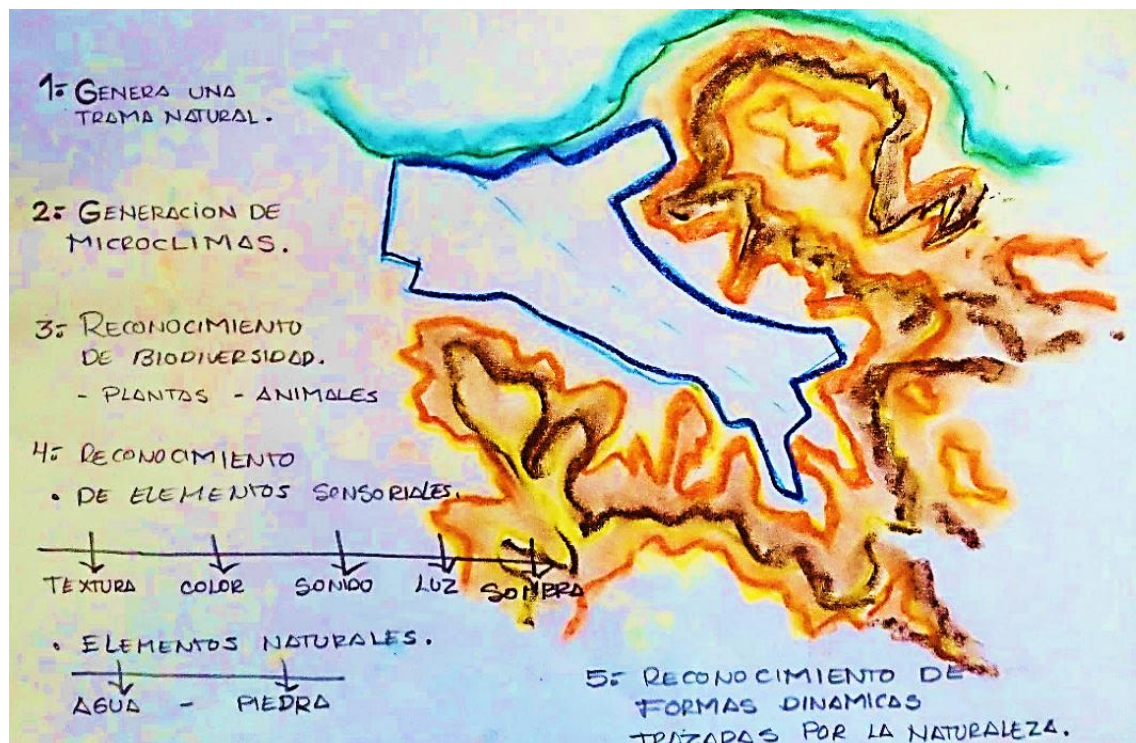 1: GENERA UNA
TRAMA NATURAL.
2: GENERACION DE
MICROCLIMAS.
3: RECONOCIMIENTO
DE BIODIVERSIDAD.
- PLANTAS - ANIMALES
4: RECONOCIMIENTO
• DE ELEMENTOS SENSORIALES.
TEXTURA COLOR SONIDO LUZ SOMBRA
• ELEMENTOS NATURALES.
AGUA - PIEDRA
5: RECONOCIMIENTO DE
FORMAS DINAMICAS
TRAZADAS POR LA NATURALEZA.